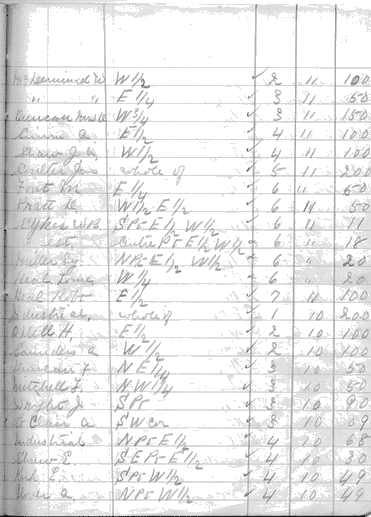 McDearmid W W 1/2 ✓ 2 11 100
" " E 1/4 ✓ 3 11 50
Duncan Mrs W 3/4 ✓ 3 11 150
E 1/2 ✓ 4 11 100
Shaw J W 1/2 ✓ 4 11 100
Coulter Jas whole of ✓ 5 11 200
Fort E 1/4 ✓ 6 11 50
Pratt W 1/2 E 1/2 ✓ 6 11 50
S Pt E 1/2 W 1/2 ✓ 6 11 11
est Centre Pt E 1/2 W 1/2 6 " 18
Miller N Pt E 1/2 W 1/2 6 " 20
Neal W 1/4 6 " 20
Neal Robt E 1/2 ✓ 7 11 100
Industrial whole of ✓ 1 10 200
O'Neil H. E 1/2 ✓ 2 10 100
Saunders a W 1/2 ✓ 2 10 100
N E 1/4 ✓ 3 10 50
Mitchell F. N W 1/4 ✓ 3 10 50
Wright J S Pt ✓ 3 10 90
St Clair a S W Cor ✓ 3 10 09
Industrial N Pt E 1/2 ✓ 4 10 68
Shaw E. S E Pt E 1/2 ✓ 4 10 30
E. S Pt W 1/2 ✓ 4 10 49
a. N Pt W 1/2 ✓ 4 10 49